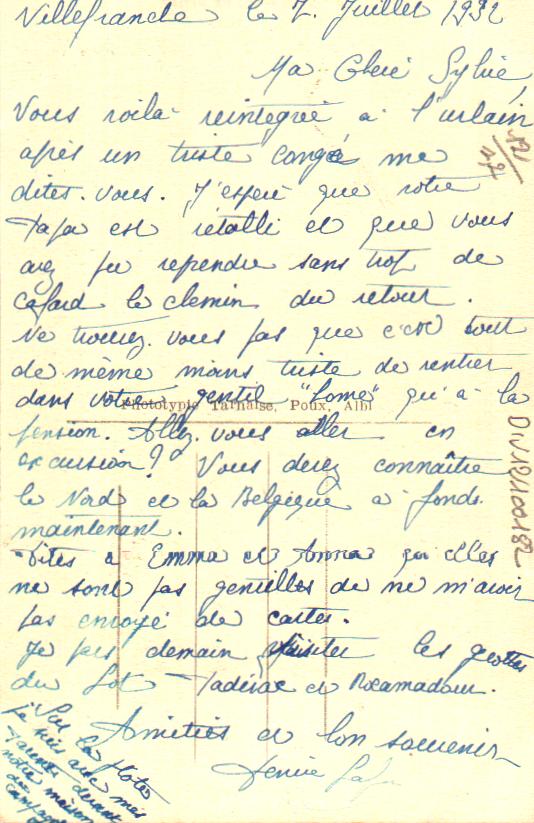 Villefranche le 7. Juillet 1932
Ma Chère Sylvie,
Vous voilà réintégrée à l'urbain
après un triste congé me
dites-vous. J'espère que votre
Papa est rétabli et que vous
avez pu reprendre sans trop de
cafard le chemin du retour.
Ne trouvez-vous pas que c'est tout
de même moins triste de rentrer
dans votre gentil "home" qu'à la
pension. Allez-vous aller en
excursion? Vous devez connaître
le Nord et la Belgique à fonds
maintenant.
Dites à Emma et Anna qu'elles
ne sont pas gentilles de ne m'avoir
pas envoyé de cartes.
Je pars demain visiter les grottes
du Lot - Padirac et Rocamadour.
Amitiés et bon souvenir
Denise
Sur la photo
je suis avec mes
parents devant
notre maison
de campagne
Phototypie Tarnaise, Poux, Albi